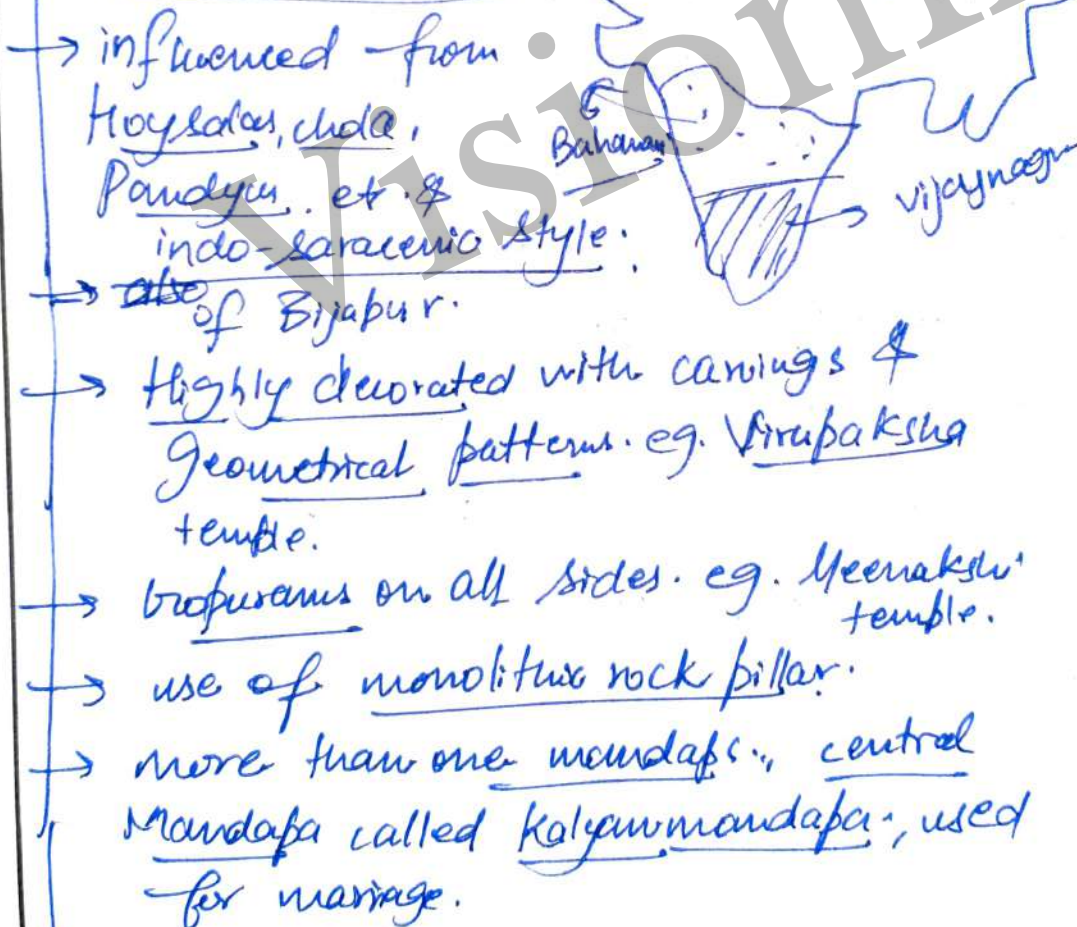 → influenced from
Hoysalas, chola,
Pandyas etc. &
indo-saracenic style.
→ of Bijapur.
→ Highly decorated with carvings &
geometrical patterns. eg. Virupaksha
temple.
→ Gopurams on all sides. eg. Meenakshi
temple.
→ use of monolithic rock pillar.
→ more than one mandaps., central
Mandapa called Kalyanmandapa., used
for marriage.
Bahamani
Vijaynagr
Vision